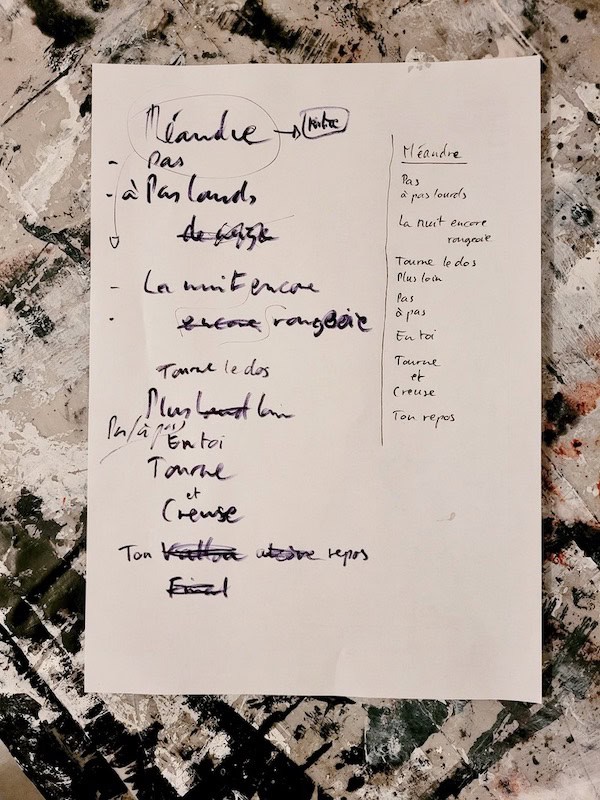 Méandre
Pas
- à Pas lourds
- La nuit encore
encore rougeoie
Tourne le dos
Plus loin
Pas/à pas/
En toi
Tourne
et
Creuse
Ton repos
Final
Méandre
Pas
à pas lourds
La nuit encore
rougeoie
Tourne le dos
Plus loin
Pas
à pas
En toi
Tourne
et
Creuse
Ton repos